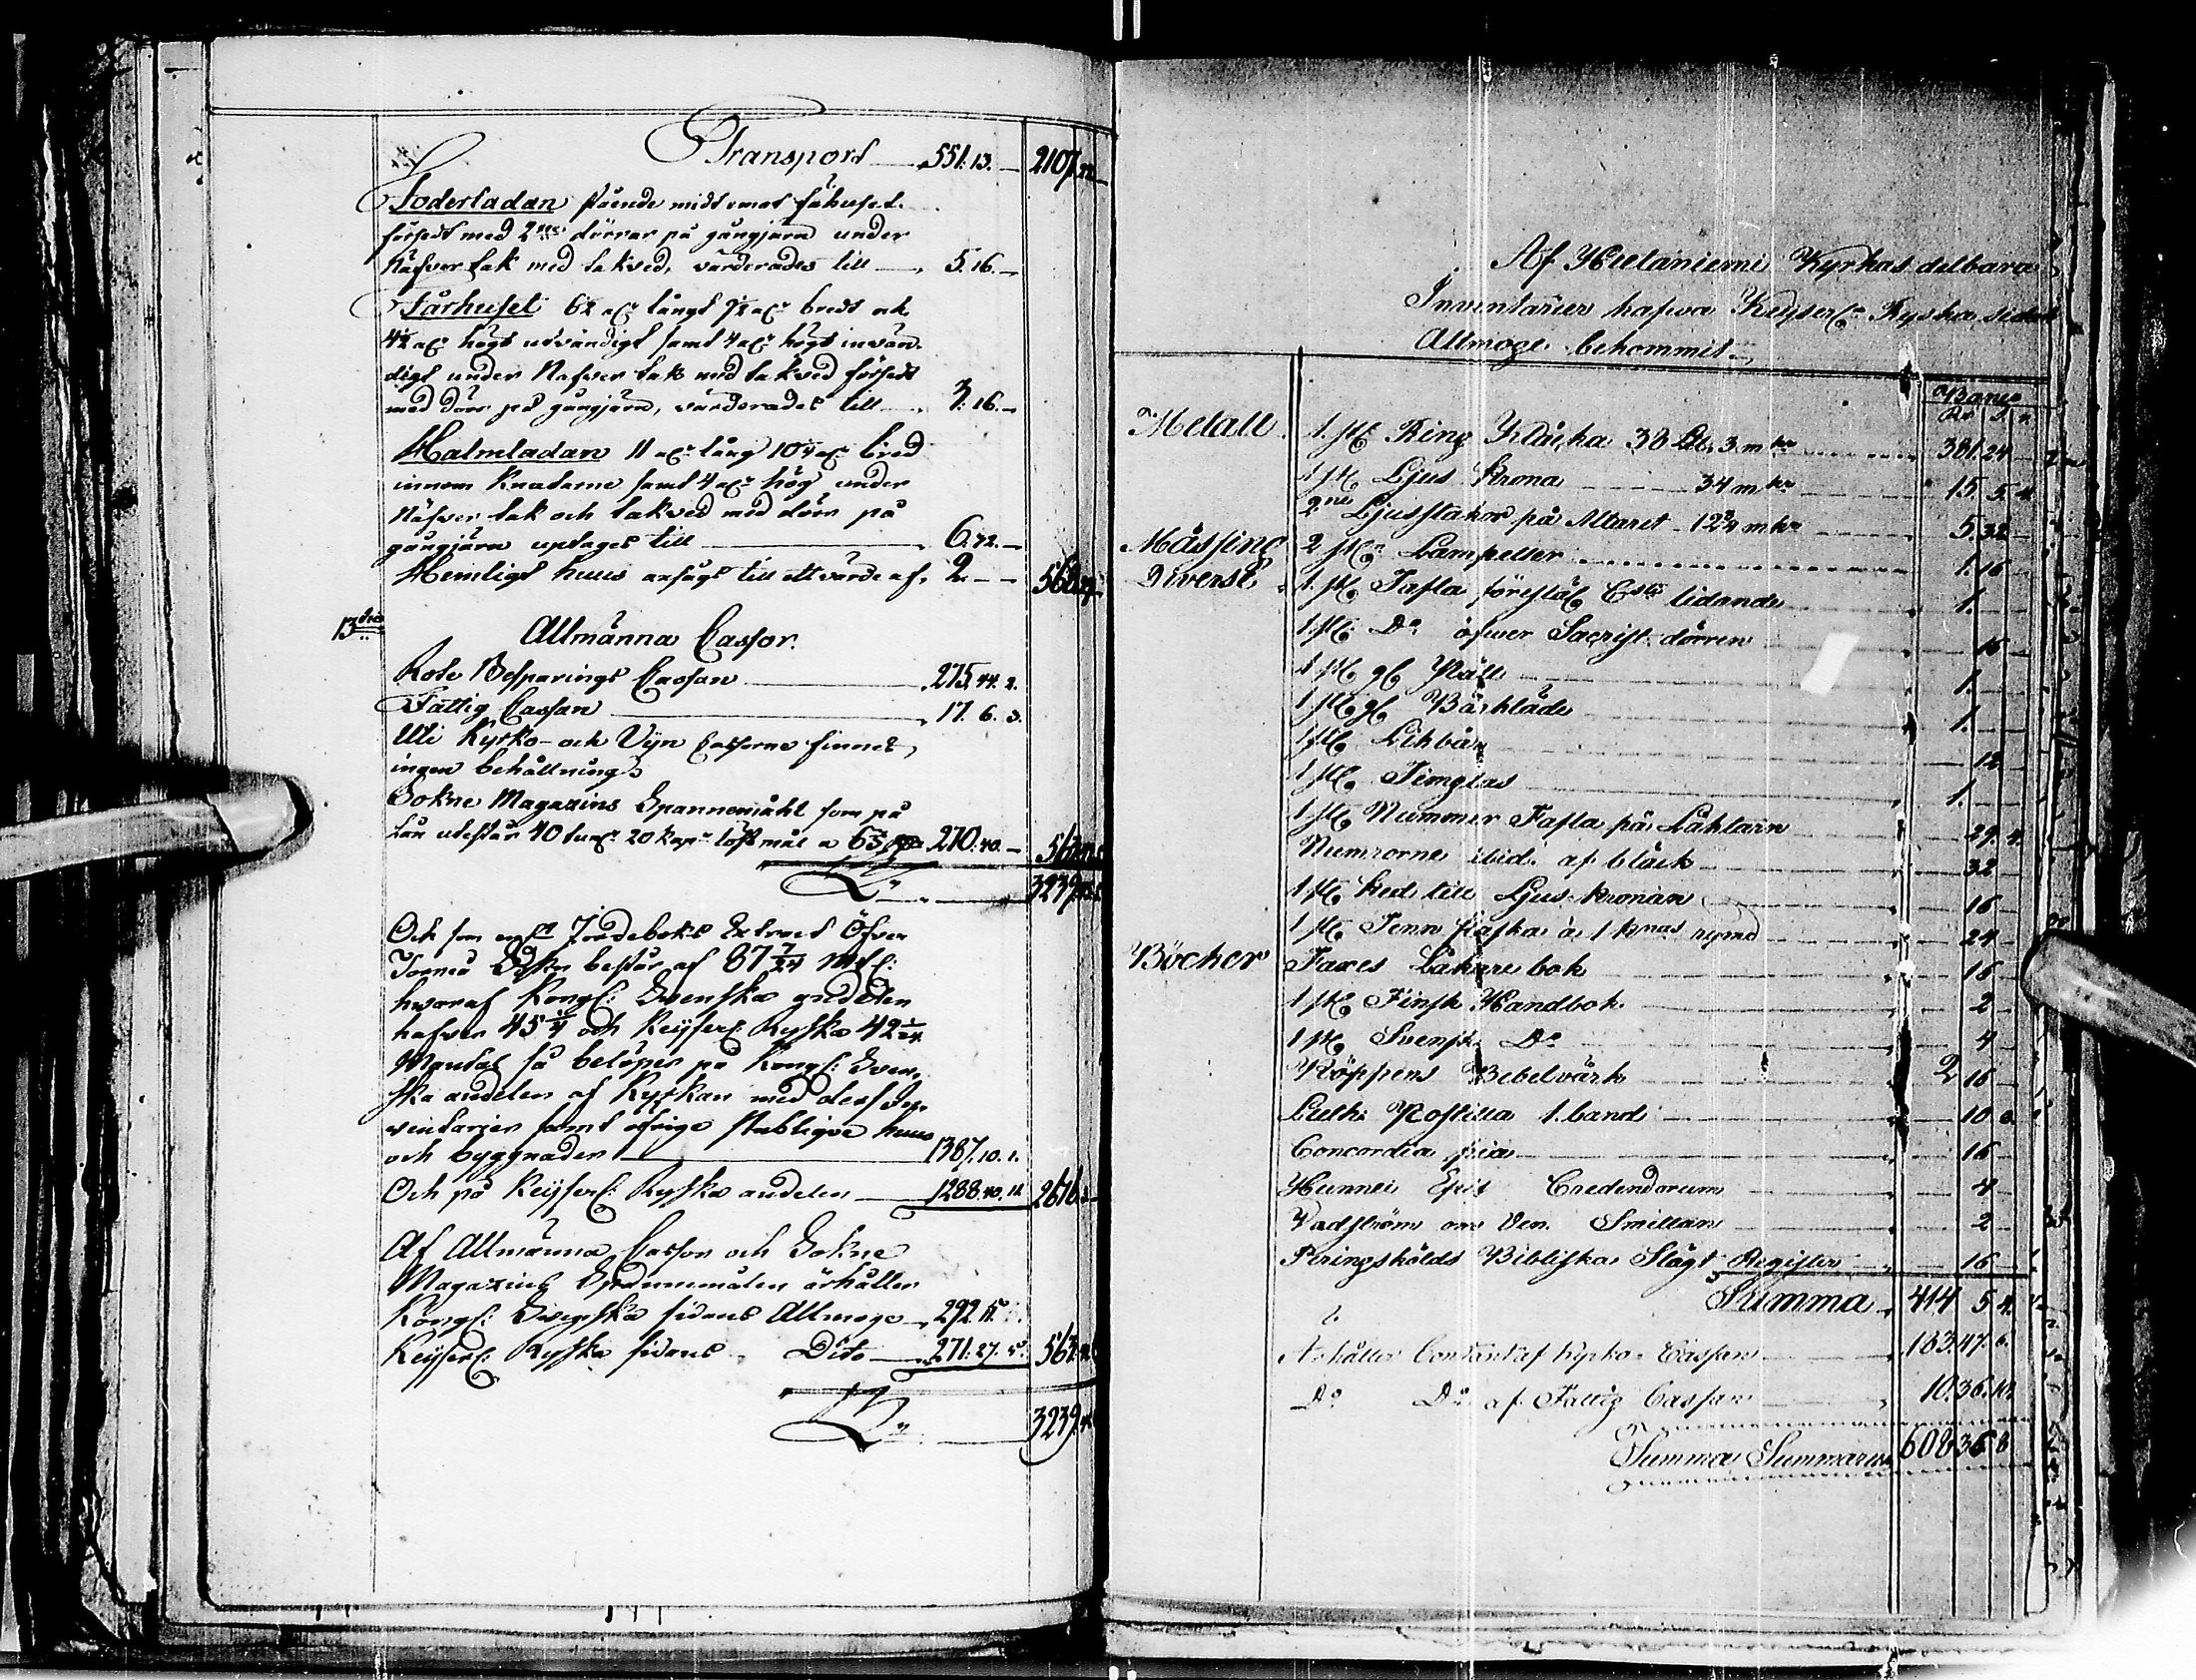 Transport 551. 13. — 2107.
Foderladan stående midt emot fähuset
försedt med 2ne dörrar på gångjärn under
Näfver tak med takved, värderades till 5. 16. —
Fårhuset 6½ aln långt bredt och
4½ aln högt utvändigt samt 4 aln högt invän
digt under Näfver tak med takved försedt
med dörr på gångjärn, värderades till 3. 16. —
Halmladan 11 aln lång 10¼ aln bred
innom Knutarne samt 4 aln hög under
Näfver tak och takved med dörr på
gångjärn uptages till 6. 32. —
Hemligt huus ansågs till ett värde af 2. — — 568.
13de
Allmänna Cassor.
Rote Besparings Cassan 275. 44. 2.
Fattig Cassan 17. 6. 3.
Uti Kyrko- och Vijn Cassorne finnes
ingen behållning.
Sokne Magazins Spannemåhl som på
Lån utestår 40 tunr 20 kapr löst mål a 270. 40. — 563.
Sr 3239.
Och som Jordeboks Extract Öfver
Torneå Sokn består af 87 7/24 Mtl:
hvaraf Kongl: Svenska andelen
hafver 45¼ och Keijserl: Ryska 42 1/24
Mantal så belöper på Kongl: Sven
ska andelen af Kyrkan med dess In
ventarier samt öfrige Publique huus
och byggnader 1387. 10. 1.
Och på Keijserl: Ryska andelen 1288. 40. 11. 2676.
Af Allmänna Cassor och Sokne
Magazins Spannemålen erhåller
Kongl: Svenska sidans Allmoge 292. 11.
Keijserl: Ryska sidans Dito 271. 27. 5. 563.
Sr 3239.
Af Hietaniemi Kyrkas delbara
Inventarier hafwa Keijserl. Ryska sidans
Allmoge bekommit.
Banco
Rd s r
Metall 1 st. Ring Klåcka 38 Lb 3 mkr 381. 24
1 st. Ljus Krona 34 mkr 15. 5. 4
2ne Ljusstakar på Altaret 12¾ mkr 5. 32
Mässing 2 st. Lampetter 1. 16
Diverse 1 st. Tafla föreställ. Csti lidande 1.
1 st. Do öfwer Sacrist. dörren 16
1 st. gl. Päll 1.
1 st. gl. Bårkläde 1.
1 st. Likbår 12
1 st. Timglas 1.
1 st. Nummer Tafla på Läktarn 29. 4.
Numrorne ibid. af bläck 32
1 st. Ked till Ljus-Kronan 16
1 st. Tenn flaska à 1 Knas rymd 24
Böcker Taxes Läkare bok 16
1 st. Finsk Handbok 2
1 st. Svensk Do 4
Köppens Bibelvärk 2 16
Luth. Postilla 1. band 10
Concordia pia 16
Hunnei Epit Credendorum 4
Wadström om Ven. Smittan 2
Peringskölds Bibliska Slägt Register 16
Summa 414 5 4.
Erhåller Contant af Kyrko-Cassan 183. 47. 6.
Do Do af Fattig Cassan 10. 36. 10.
Summa Summarum 608 36 8